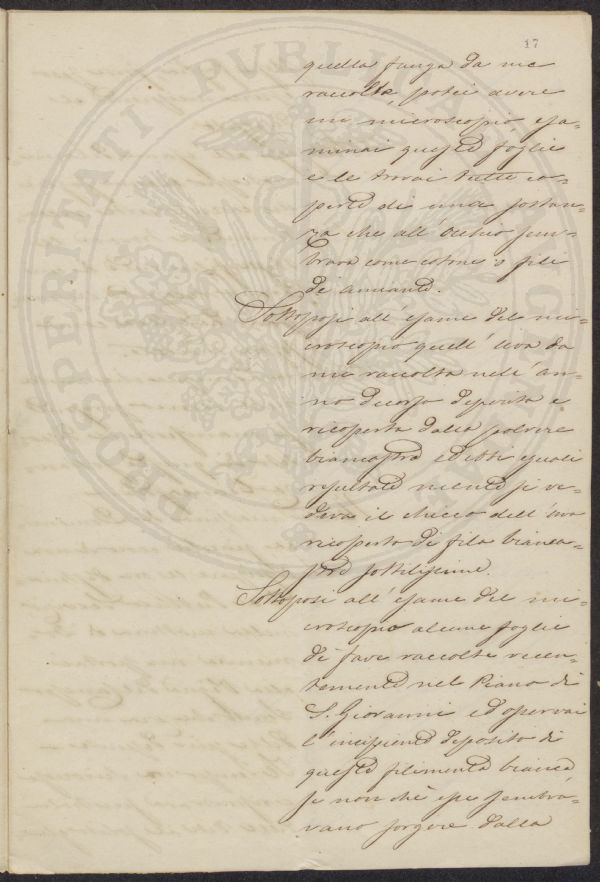 17
quella fanga da me
raccolta potei avere
un microscopio esa=
minai queste foglie
e le trovai tutte co=
perte di una sostan=
za che all'occhio sem=
brava come cotone o fili
di amianto.
Sottoposi all'esame del mi=
croscopio quell'uva da
me raccolta nell'an=
no decorso deperita e
ricoperta dalla polvere
biancastra ed ebbi eguali
resultato mentre si ve=
deva il chicco dell'uva
ricoperto di fila bianca=
stre sottilissime.
Sottoposi all'esame del mi=
croscopio alcune foglie
di fave raccolte recen=
temente nel Piano di
S. Giovanni ed osservai
l'incipiente deposito di
queste filamenta bianche
se non chè esse sembra=
vano sorgere dalla
PROSPERITATI PUBLICAE AUGENDAE